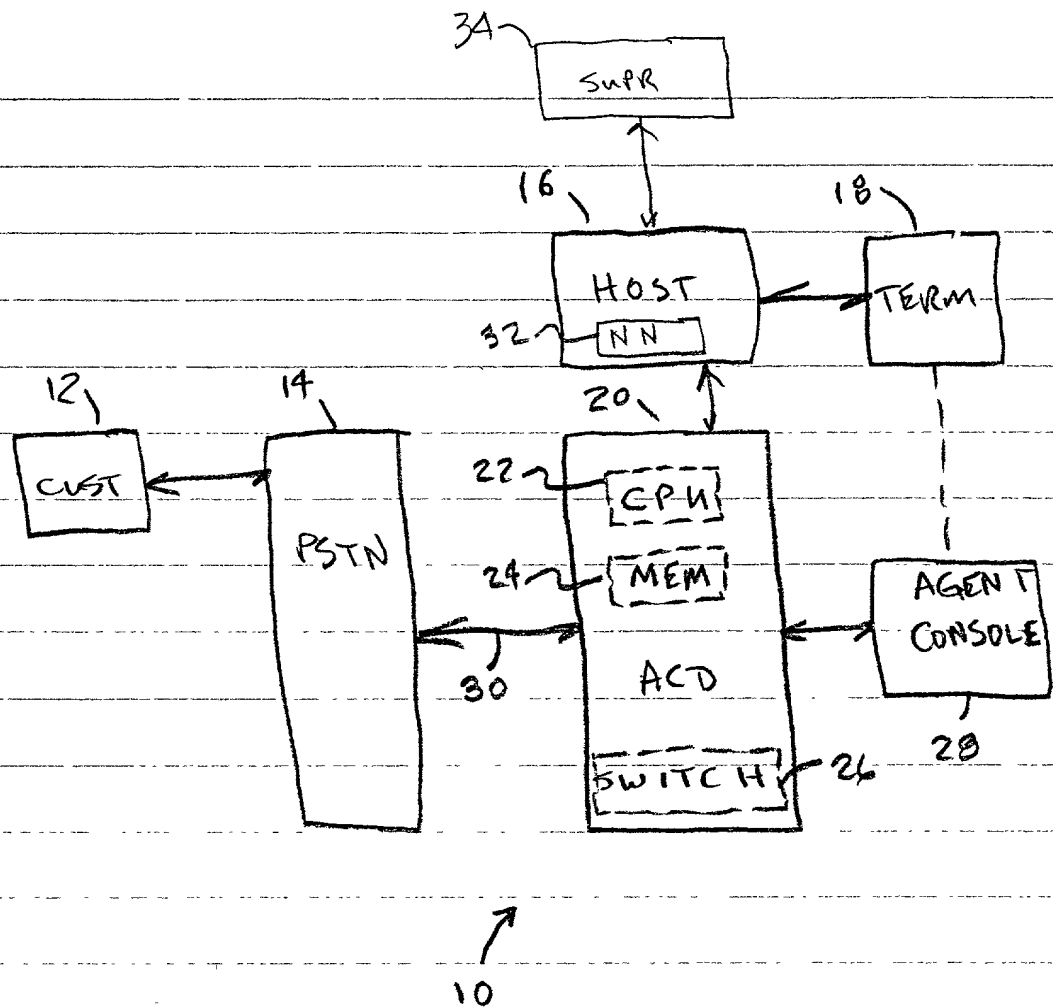 34
SUPR
16
18
HOST
TERM
32
NN
12
14
20
CUST
22
CPU
PSTN
24
MEM
AGENT
CONSOLE
30
ACD
28
SWITCH
26
10